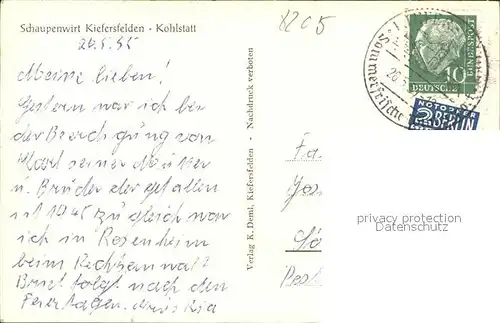 Schaupenwirt Kiefersfelden - Kohlstatt
26.5.55
Meine lieben!
Gestern war ich bei
der Beerdigung von
Karl seiner Mutter
u. Brüder der gefallen
ist 1945 zugleich war
ich in Rosenheim
beim Rechtsanwalt
Brief folgt nach den
Feiertagen.
Verlag K. Deml, Kiefersfelden - Nachdruck verboten
Sommerfrische
10
DEUTSCHE
BUNDESPOST
NOTOPFER
2 BERLIN
privacy protection
Datenschutz